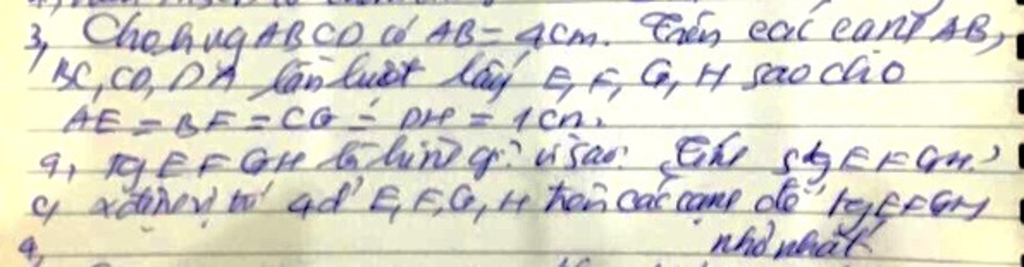 3, Cho hvg ABCD có AB = 4cm. Trên các cạnh AB,
BC, CD, DA lần lượt lấy E, F, G, H sao cho
AE = BF = CG = DH = 1cm.
a, tg EFGH là hình gì? vì sao? Tính Stg EFGH?
c, xđ vị trí 4đ' E, F, G, H trên các cạnh để tg EFGH
nhỏ nhất